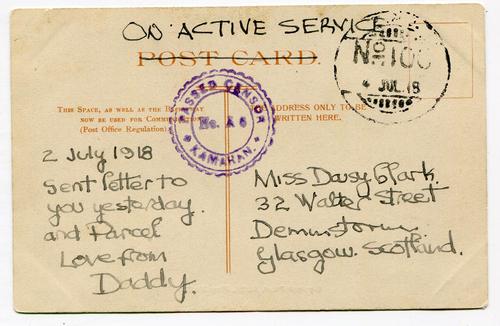 ON ACTIVE SERVICE
POST CARD.
No 100
4 JUL 18
PASSED CENSOR
No. A 6
KAMARAN.
THIS SPACE, AS WELL AS THE BACK, MAY
NOW BE USED FOR
(Post Office Regulation).
ADDRESS ONLY TO BE
WRITTEN HERE.
2 July 1918
Sent letter to
you yesterday.
and Parcel
Love from
Daddy.
Miss Daisy Clark.
32 Walter Street
Glasgow. Scotland.